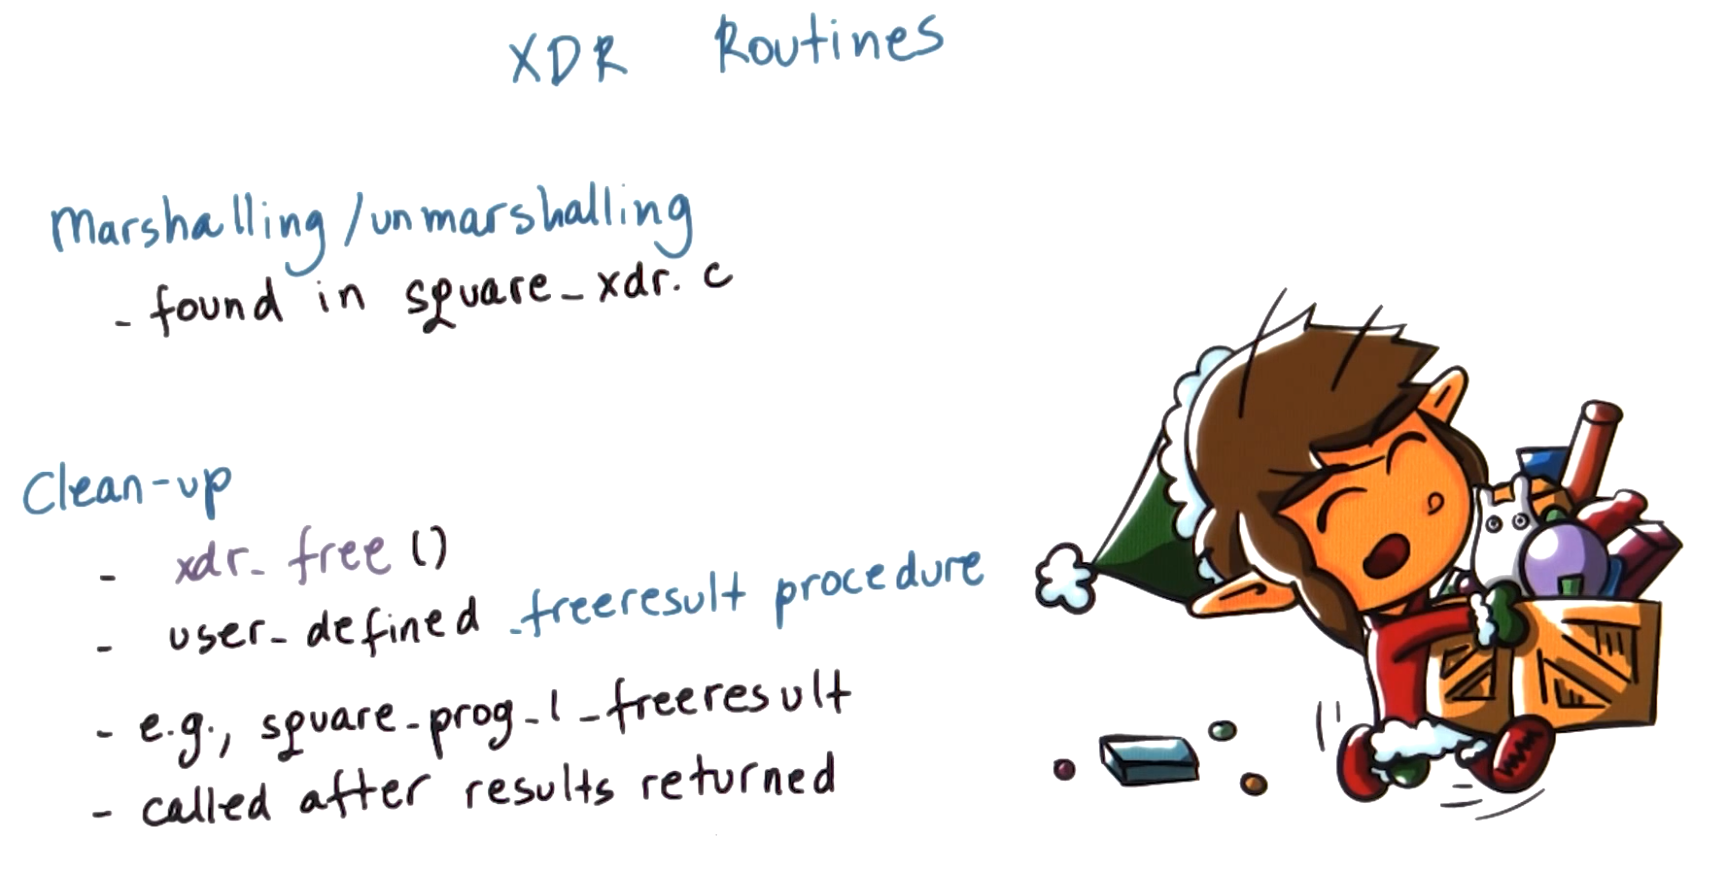 XDR Routines
Marshalling/unmarshalling
- found in square_xdr.c
Clean-up
- xdr_free()
- user-defined _freeresult procedure
- e.g., square_prog_1_freeresult
- called after results returned